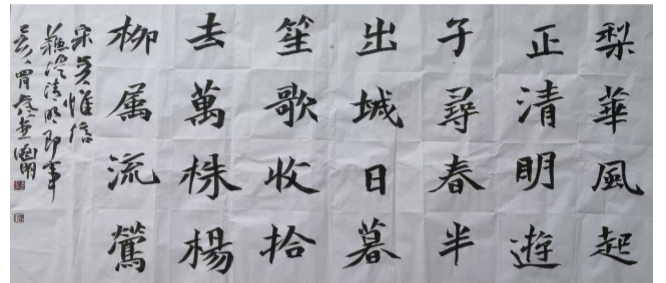 梨華風起
正清明遊
子尋春半
出城日暮
笙歌收拾
去萬株楊
柳属流鶯
宋吴惟信
蘇堤清明即事